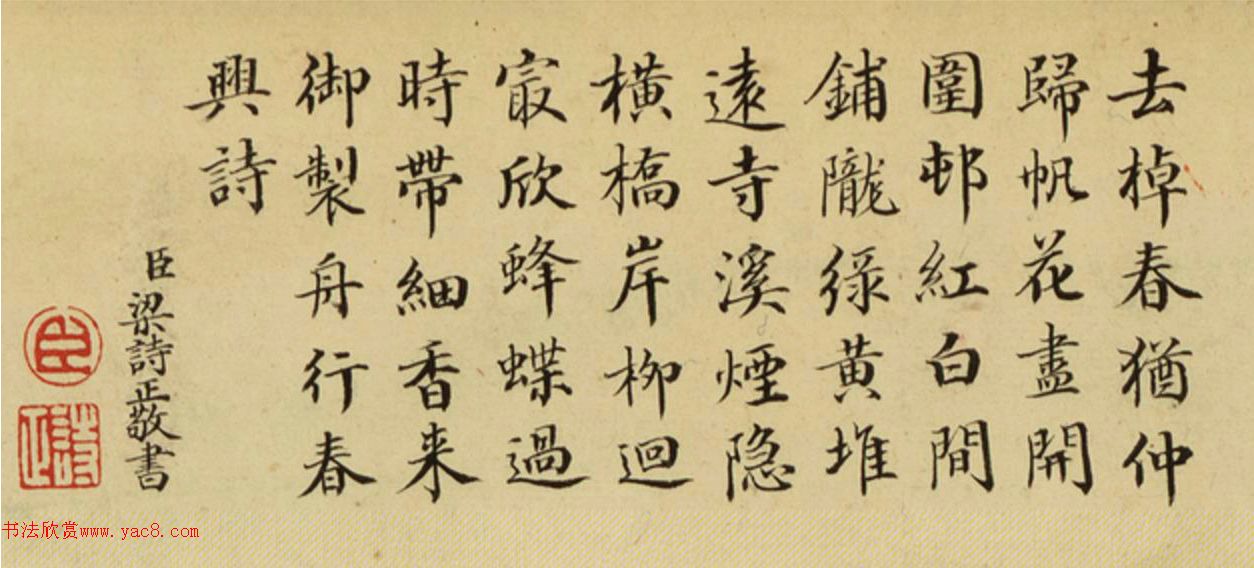 去棹春猶仲
歸帆花盡開
圍邨紅白間
鋪隴綠黃堆
遠寺溪煙隐
橫橋岸柳迴
㝡欣蜂蝶過
時帶細香来
御製舟行春
興詩
臣梁詩正敬書
臣
詩正
书法欣赏www.yac8.com